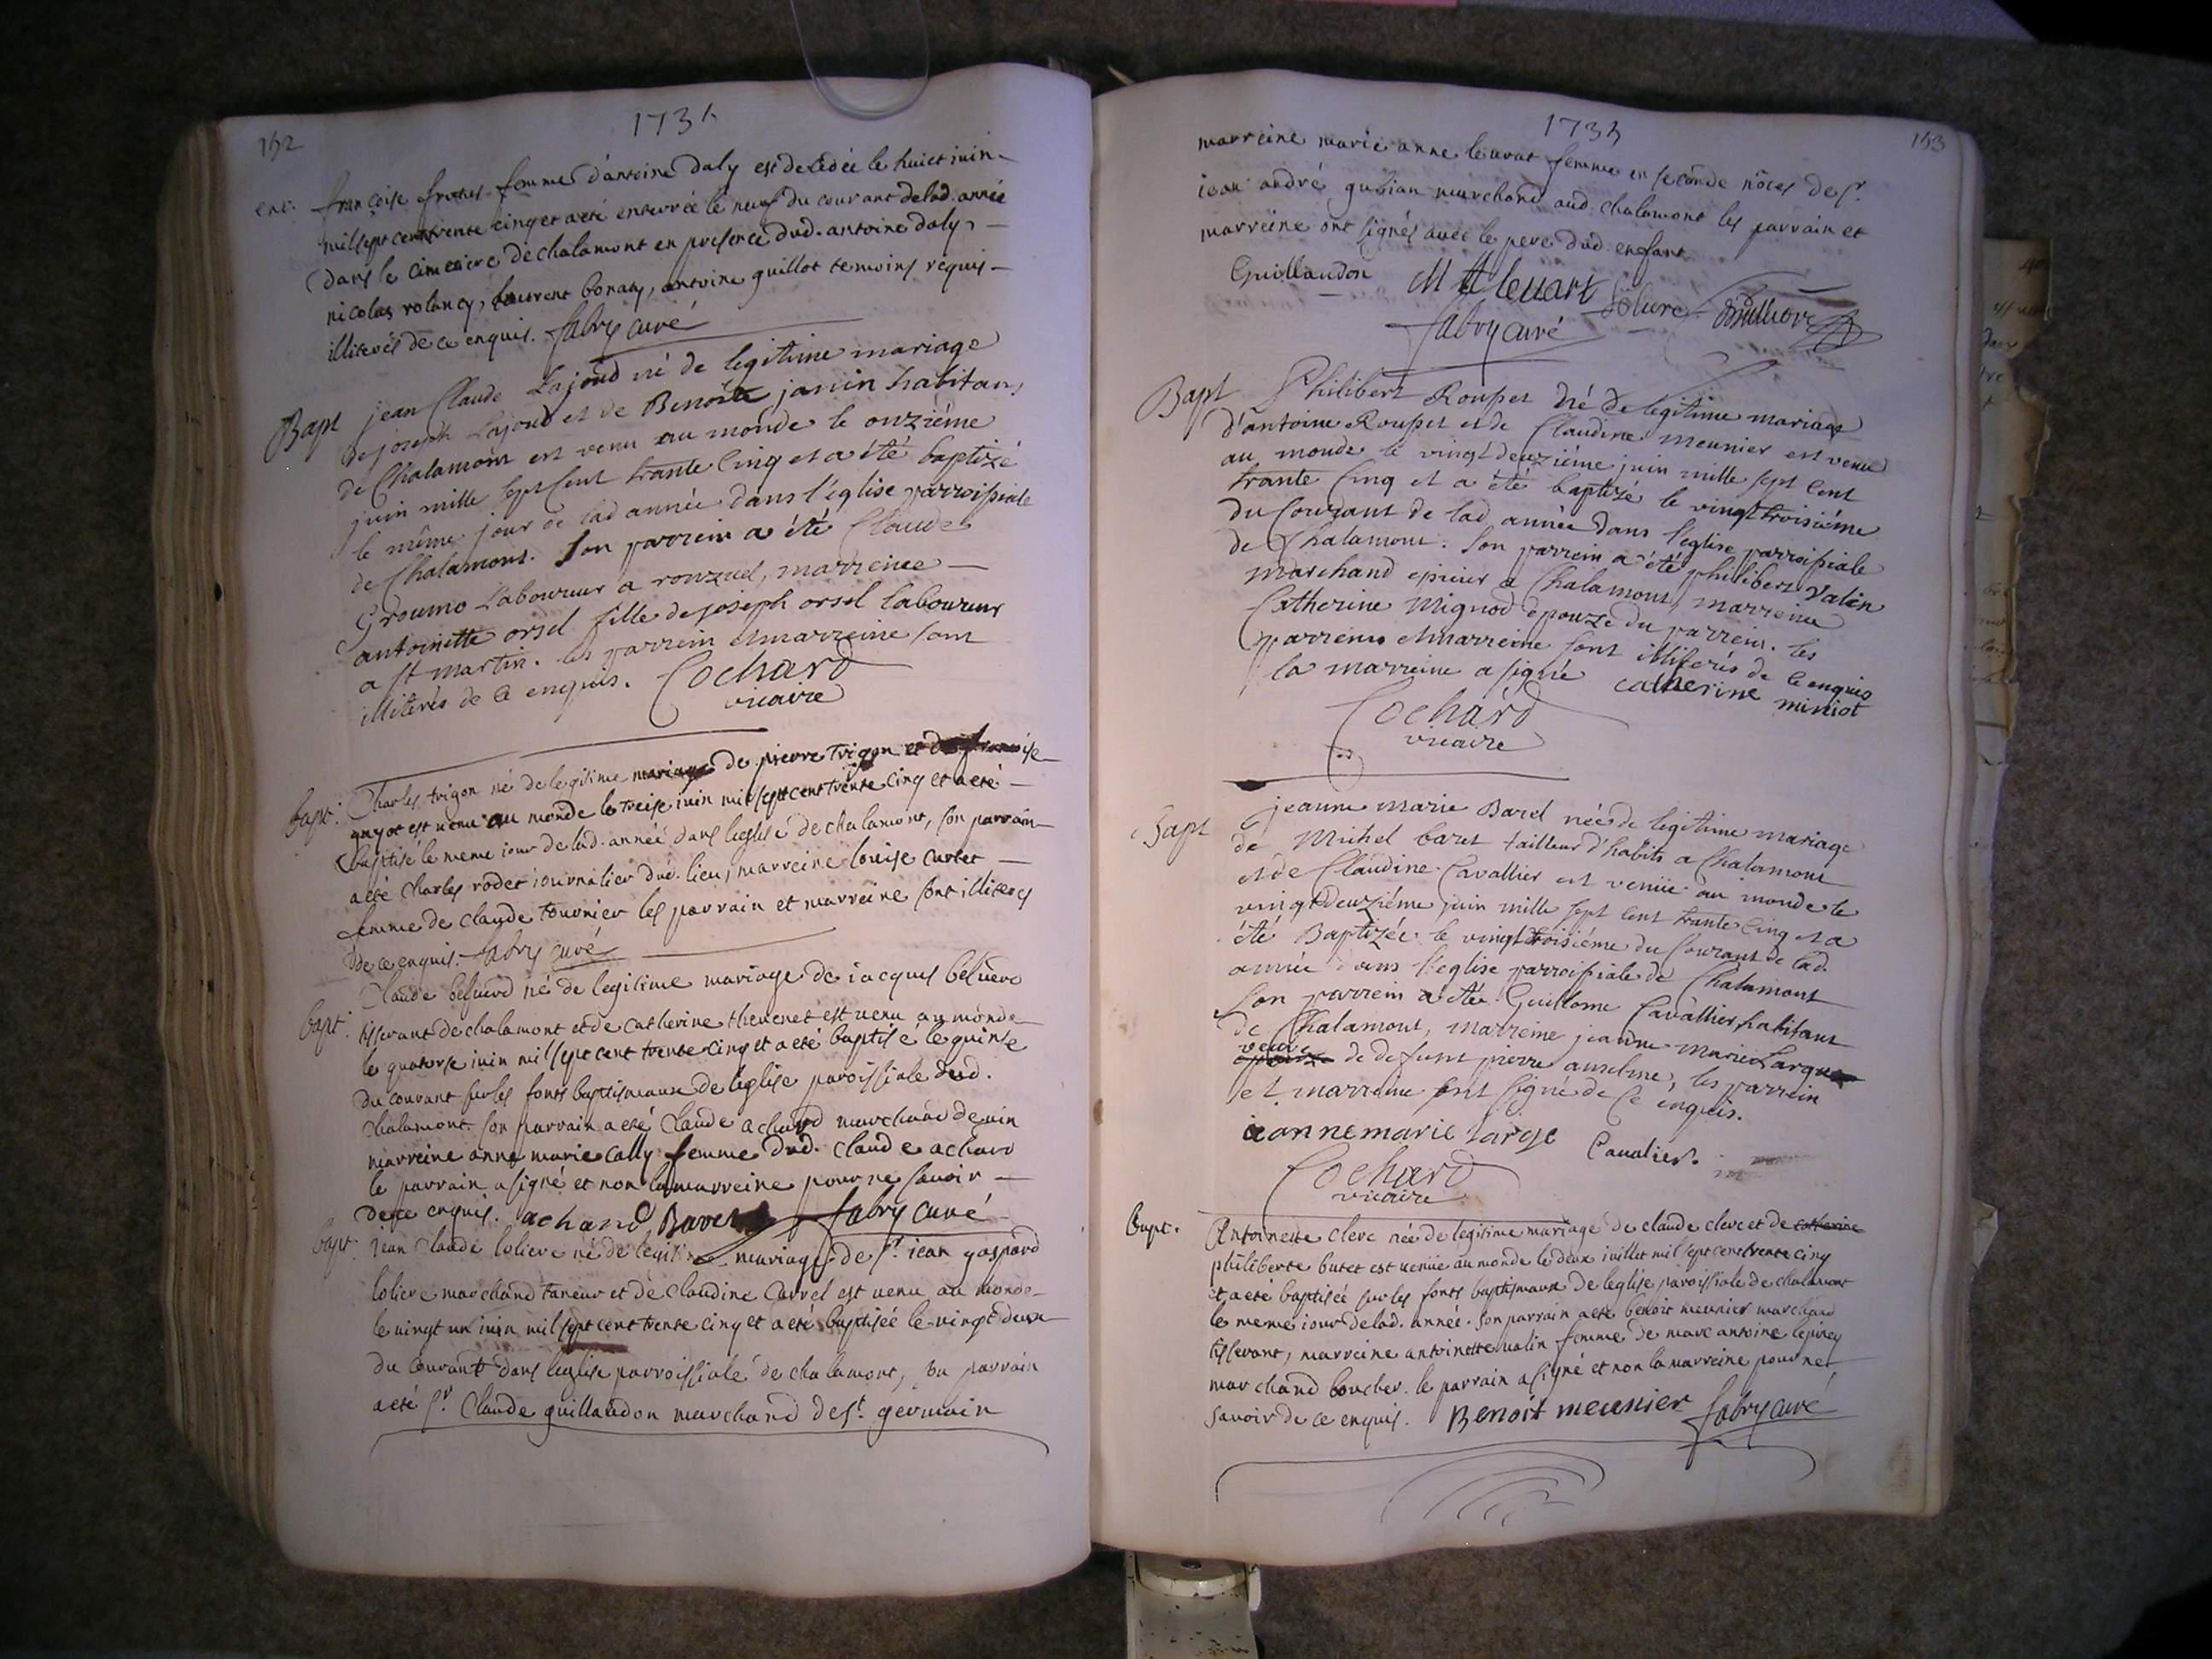 152
1735
ent. françoise femme d'antoine daly est decédée le huict iuin
mil sept cent trente cinq et a eté enterrée le neuf du courant de lad. année
dans le cimetiere de chalamont en presence dud. antoine daly,
nicolas rolancy, laurent bonary, antoine guillot temoins requis
illiterés de ce enquis. fabry curé
Bapt jean Claude Lajoud né de legitime mariage
de joseph Lajoud et de Benoite janin habitans
de Chalamont est venu au monde le onziéme
juin mille sept Cent trante Cinq et a été baptizé
le même jour de lad année dans l'église parroissiale
de Chalamont. Son parrein a été Claude
Groumo Laboureur a ronzuel, marreine
antoinette orsel fille de joseph orsel laboureur
a st martin. les parrein et marreine sont
illiterés de ce enquis. Cochard
vicaire
bapt. Charles trigon né de legitime mariage de pierre trigon et de françoise
guyot est venu au monde le treise iuin mil sept cent trente cinq et a eté
baptisé le meme iour de lad. année dans l'eglise de chalamont, son parrain
a eté Charles rodet iournalier dud. lieu, marreine louise curtet
femme de claude tournier les parrain et marreine sont illiterés
de ce enquis. fabry curé
bapt. Claude beluard né de legitime mariage de iacques béluard
tisserant de chalamont et de catherine thevenet est venu au monde
le quatorse iuin mil sept cent trente cinq et a eté baptisé le quinse
du courant sur les fonts baptismaux de l'eglise paroissiale dud.
chalamont. son parrain a eté Claude achard marchand de vin
marreine anne marie cally femme dud. claude achard
le parrain a signé et non la marreine pour ne savoir
de ce enquis. achard fabry curé
bapt. Jean Claude loliere né de legitime mariage de sr. iean gaspard
loliere marchand taneur et de claudine carrel est venu au monde
le vingt un iuin mil sept cent trente cinq et a eté baptisée le vingt deux
du courant dans l'eglise parroissiale de chalamont, son parrain
a eté sr. Claude guillaudon marchand de st. germain
1735
153
marreine marie anne leurat femme en seconde nôces de sr.
iean andré gubian marchand aud. chalamont les parrain et
marreine ont signés avec le pere dud. enfant.
Guillaudon
fabry curé
Bapt Philibert Roupet né de legitime mariage
d'antoine Roupet et de Claudine meunier est venu
au monde le vingt deuziéme juin mille sept Cent
trante Cinq et a été baptizé le vingt troisiéme
du Courant de lad année dans l'eglise parroissiale
de Chalamont. Son parrein a été philibert Valin
marchand epicier a Chalamont, marreine
Catherine Mignod epouze du parrein. les
parreins et marreine sont illiterés de ce enquis
la marreine a signé catherine miniot
Cochard
vicaire
Bapt jeanne marie Baret née de legitime mariage
de Michel baret tailleur d'habits a Chalamont
et de Claudine Cavallier est venüe au monde le
vingt deuziéme juin mille sept cent trante Cinq et a
été Baptizée le vingt troisiéme du Courant de lad
année dans l'eglise parroissiale de Chalamont
Son parrein a été Guillome Cavallier habitant
de Chalamont, marreine jeanne marie Large
veuve de defunt pierre anselme, les parrein
et marreine ont signé de ce enquis.
ieanne marie large Cavalier
Cochard
vicaire
bapt. Antoinette clerc née de legitime mariage de claude clerc et de catherine
philiberte butet est venüe au monde le deux iuillet mil sept cent trente cinq
et a eté baptisée sur les fonts baptismaux de l'eglise paroissiale de chalamont
le meme iour de lad. année. son parrain a eté benoit meunier marchand
tisserant, marreine antoinette valin femme de marc antoine lepirey
marchand boucher. le parrain a signé et non la marreine pour ne
savoir de ce enquis. Benoit meunier fabry curé